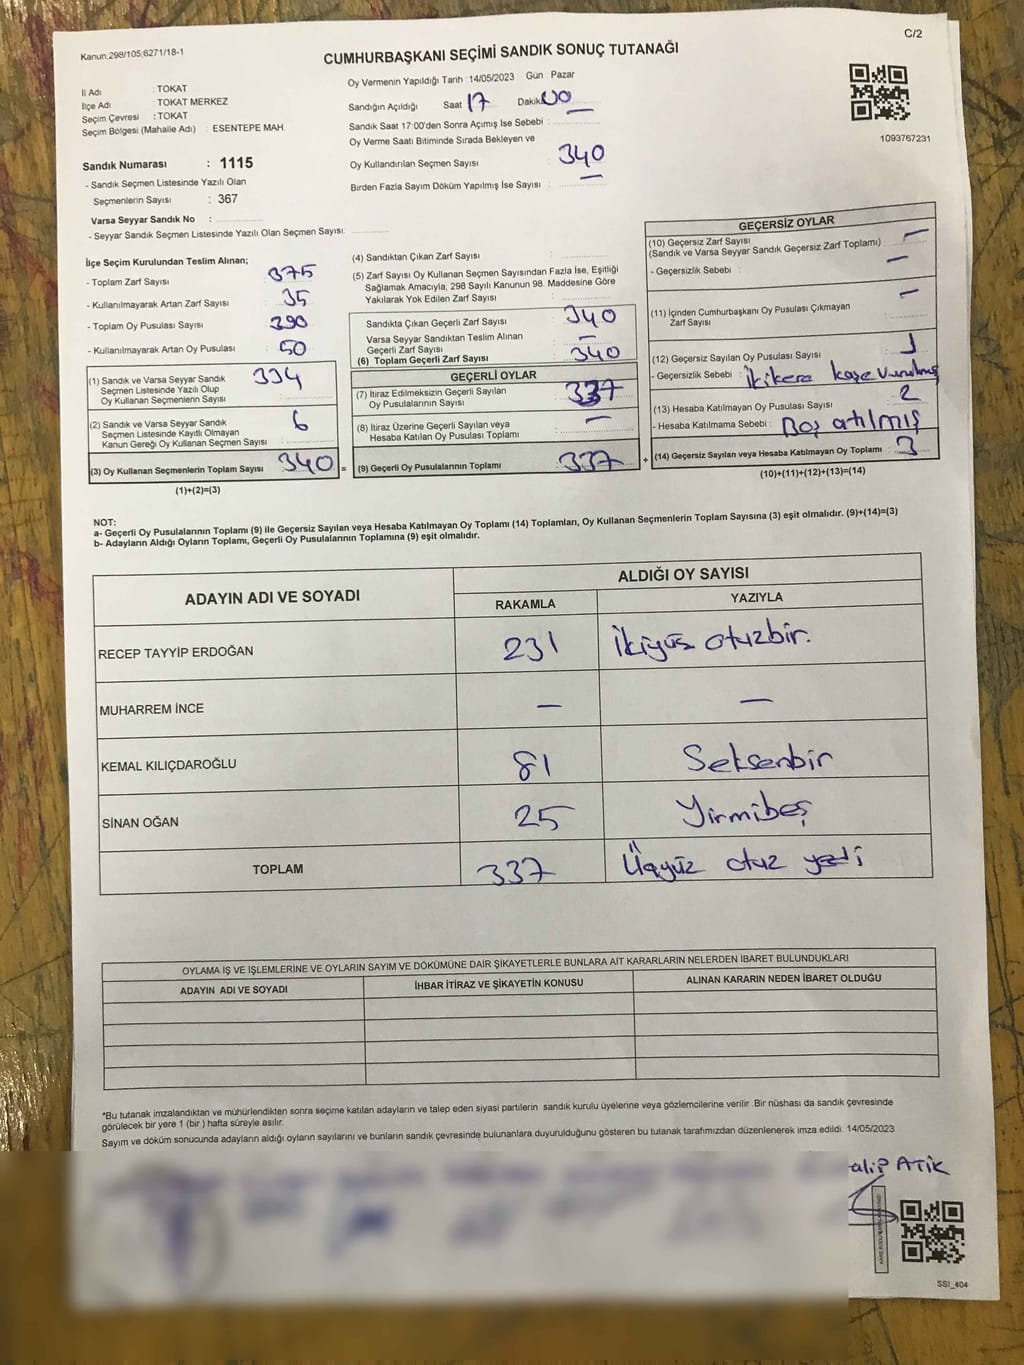 Kanun;298/105;6271/18-1
C/2
CUMHURBAŞKANI SEÇİMİ SANDIK SONUÇ TUTANAĞI
İl Adı : TOKAT
İlçe Adı : TOKAT MERKEZ
Seçim Çevresi : TOKAT
Seçim Bölgesi (Mahalle Adı) : ESENTEPE MAH
Sandık Numarası : 1115
- Sandık Seçmen Listesinde Yazılı Olan
Seçmenlerin Sayısı : 367
Varsa Seyyar Sandık No :
- Seyyar Sandık Seçmen Listesinde Yazılı Olan Seçmen Sayısı:
Oy Vermenin Yapıldığı Tarih : 14/05/2023 Gün : Pazar
Sandığın Açıldığı Saat 17 Dakika 00
Sandık Saat 17:00'den Sonra Açımış İse Sebebi :
Oy Verme Saati Bitiminde Sırada Bekleyen ve
Oy Kullandırılan Seçmen Sayısı 340
Birden Fazla Sayım Döküm Yapılmış İse Sayısı :
1093767231
İlçe Seçim Kurulundan Teslim Alınan;
- Toplam Zarf Sayısı 375
- Kullanılmayarak Artan Zarf Sayısı 35
- Toplam Oy Pusulası Sayısı 390
- Kullanılmayarak Artan Oy Pusulası 50
(1) Sandık ve Varsa Seyyar Sandık
Seçmen Listesinde Yazılı Olup
Oy Kullanan Seçmenlerın Sayısı : 334
(2) Sandık ve Varsa Seyyar Sandık
Seçmen Listesinde Kayıtlı Olmayan
Kanun Gereği Oy Kullanan Seçmen Sayısı : 6
(3) Oy Kullanan Seçmenlerin Toplam Sayısı 340 =
(1)+(2)=(3)
(4) Sandıktan Çıkan Zarf Sayısı :
(5) Zarf Sayısı Oy Kullanan Seçmen Sayısından Fazla İse, Eşitliği
Sağlamak Amacıyla, 298 Sayılı Kanunun 98. Maddesine Göre
Yakılarak Yok Edilen Zarf Sayısı :
Sandıkta Çıkan Geçerli Zarf Sayısı : 340
Varsa Seyyar Sandıktan Teslim Alınan
Geçerli Zarf Sayısı : —
(6) Toplam Geçerli Zarf Sayısı 340
GEÇERLİ OYLAR
(7) İtiraz Edilmeksizin Geçerli Sayılan
Oy Pusulalarının Sayısı : 337
(8) İtiraz Üzerine Geçerli Sayılan veya
Hesaba Katılan Oy Pusulası Toplamı : —
(9) Geçerli Oy Pusulalarının Toplamı 337 +
GEÇERSİZ OYLAR
(10) Geçersiz Zarf Sayısı —
(Sandık ve Varsa Seyyar Sandık Geçersiz Zarf Toplamı) :
- Geçersizlik Sebebi : —
(11) İçinden Cumhurbaşkanı Oy Pusulası Çıkmayan —
Zarf Sayısı :
(12) Geçersiz Sayılan Oy Pusulası Sayısı : 1
- Geçersizlik Sebebi : İkikere kaşe vurulmuş
(13) Hesaba Katılmayan Oy Pusulası Sayısı : 2
- Hesaba Katılmama Sebebi : Boş atılmış
(14) Geçersiz Sayılan veya Hesaba Katılmayan Oy Toplamı : 3
(10)+(11)+(12)+(13)=(14)
NOT:
a- Geçerli Oy Pusulalarının Toplamı (9) ile Geçersiz Sayılan veya Hesaba Katılmayan Oy Toplamı (14) Toplamları, Oy Kullanan Seçmenlerin Toplam Sayısına (3) eşit olmalıdır. (9)+(14)=(3)
b- Adayların Aldığı Oyların Toplamı, Geçerli Oy Pusulalarının Toplamına (9) eşit olmalıdır.
ADAYIN ADI VE SOYADI
ALDIĞI OY SAYISI
RAKAMLA YAZIYLA
RECEP TAYYİP ERDOĞAN 231 İkiyüs otuzbir.
MUHARREM İNCE — —
KEMAL KILIÇDAROĞLU 81 Seksenbir
SİNAN OĞAN 25 Yirmibeş
TOPLAM 337 Üçyüz otuz yedi
OYLAMA İŞ VE İŞLEMLERİNE VE OYLARIN SAYIM VE DÖKÜMÜNE DAİR ŞİKAYETLERLE BUNLARA AİT KARARLARIN NELERDEN İBARET BULUNDUKLARI
ADAYIN ADI VE SOYADI İHBAR İTİRAZ VE ŞİKAYETİN KONUSU ALINAN KARARIN NEDEN İBARET OLDUĞU
*Bu tutanak imzalandıktan ve mühürlendikten sonra seçime katılan adayların ve talep eden siyasi partilerin sandık kurulu üyelerine veya gözlemcilerine verilir .Bir nüshası da sandık çevresinde
görülecek bir yere 1 (bir ) hafta süreyle asılır.
Sayım ve döküm sonucunda adayların aldığı oyların sayılarını ve bunların sandık çevresinde bulunanlara duyurulduğunu gösteren bu tutanak tarafımızdan düzenlenerek imza edildi. 14/05/2023
alip ATİK
SSI_404